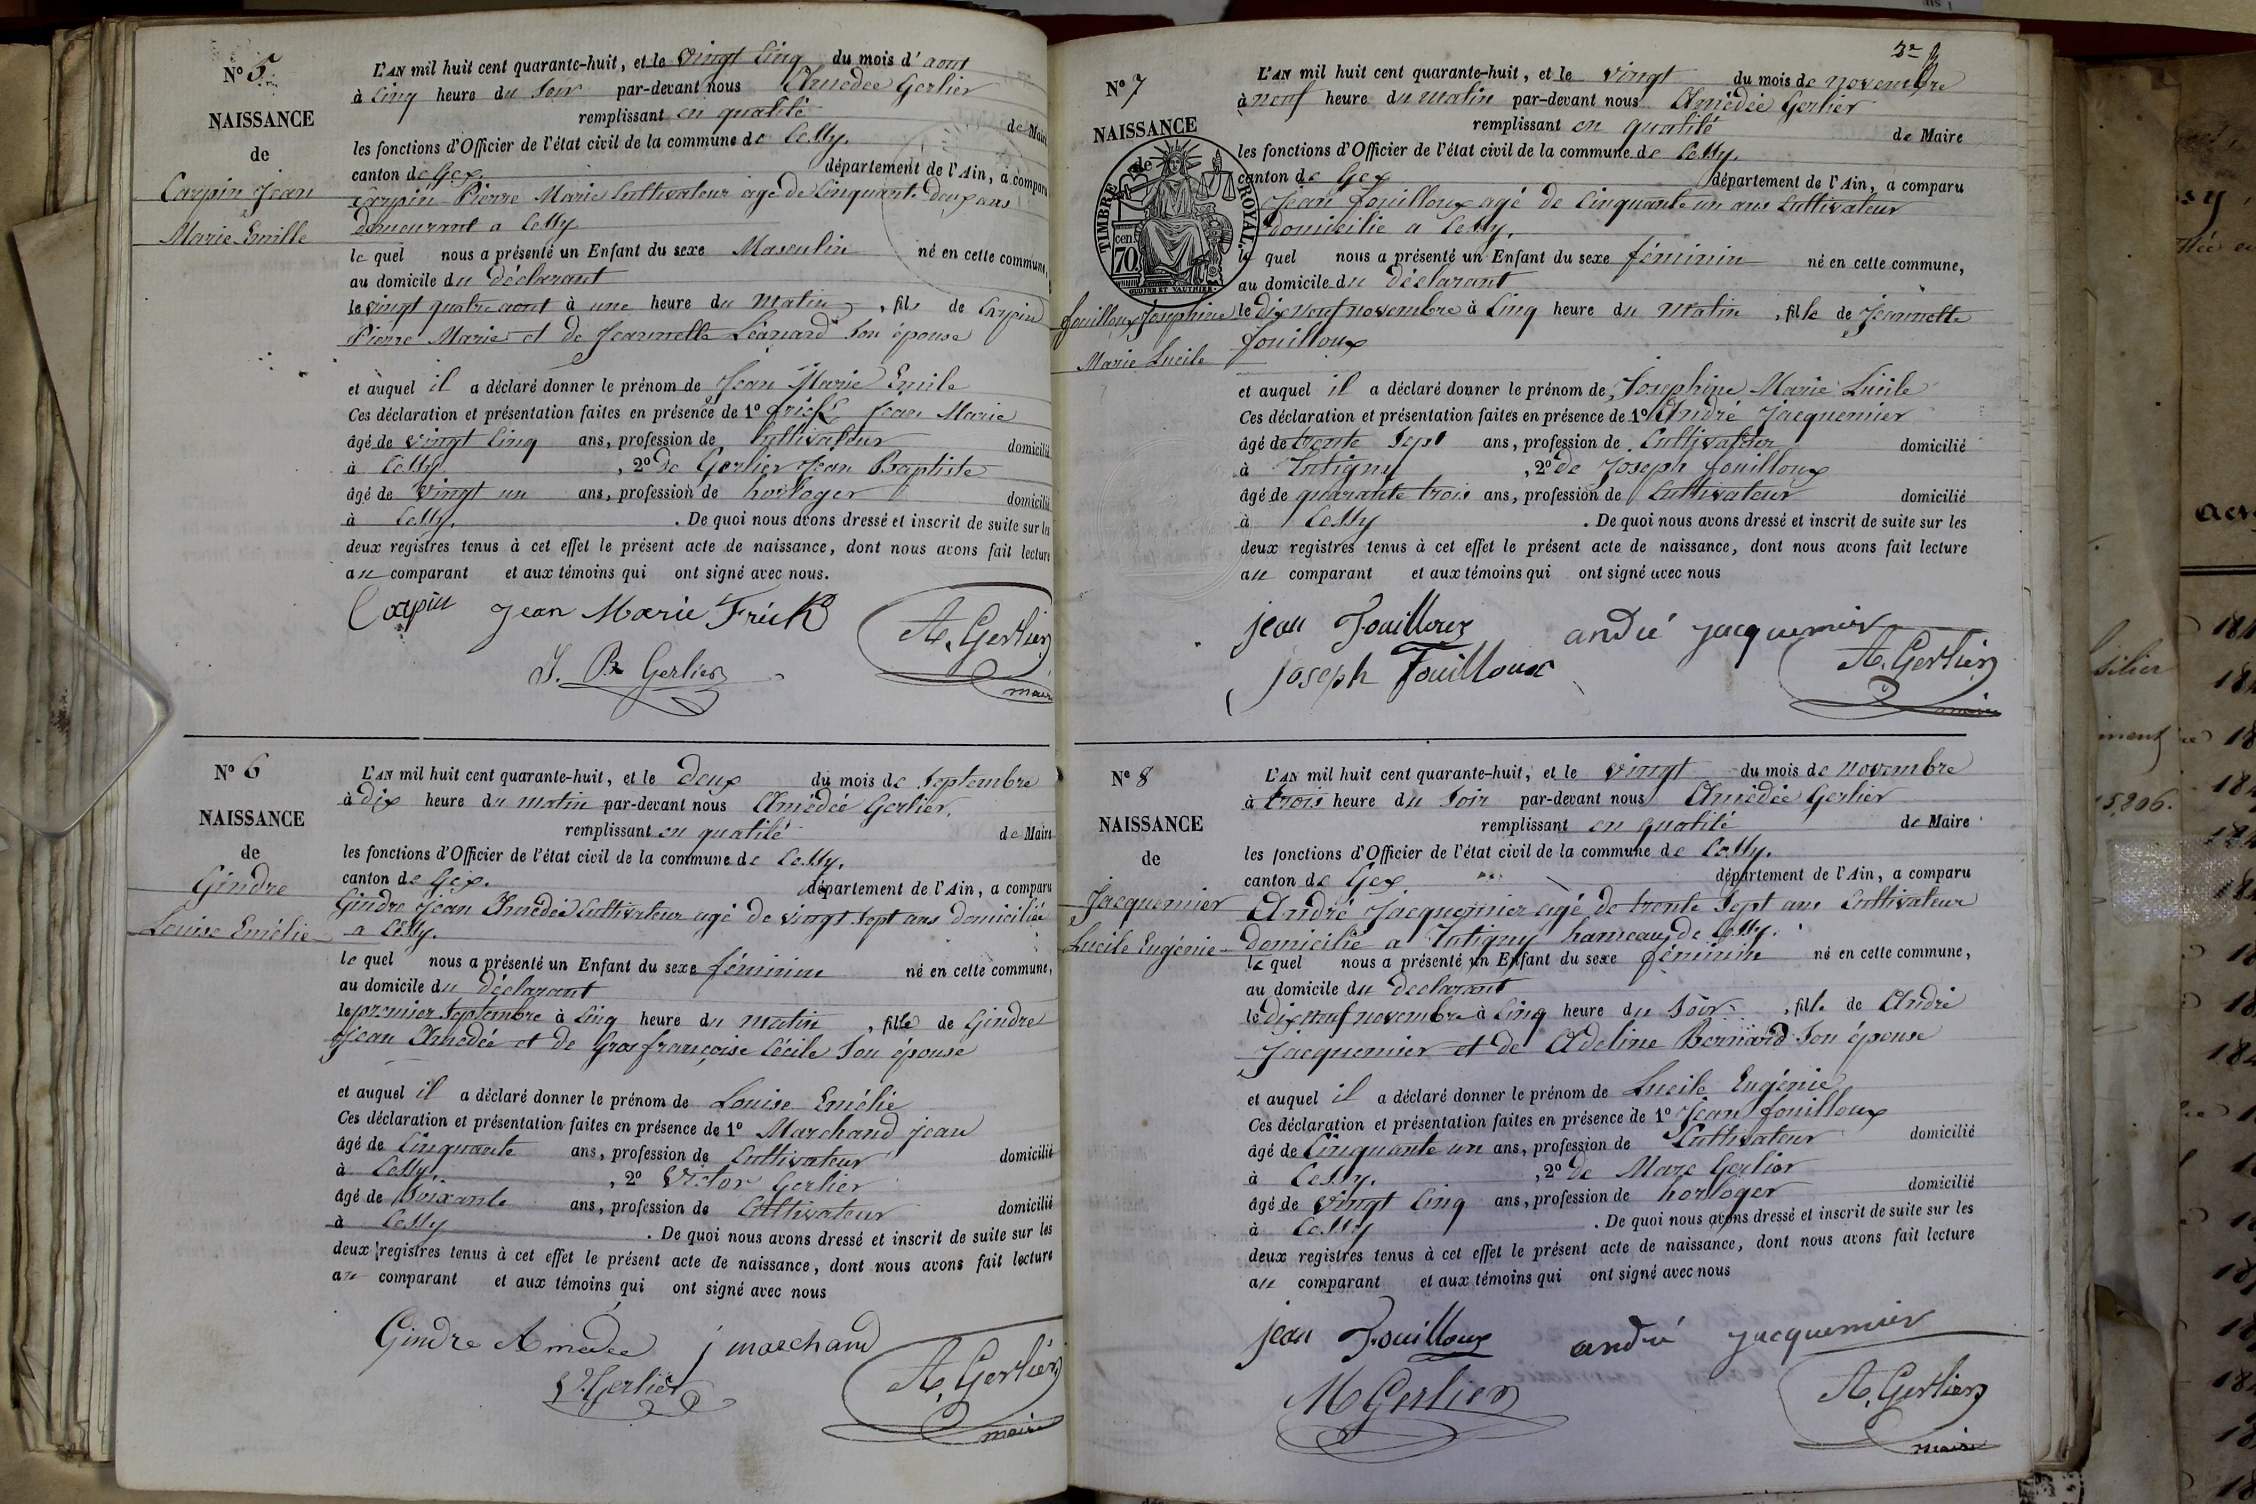 N° 5
NAISSANCE
de
Carpin Jean
Marie Emille
L'AN mil huit cent quarante-huit, et le vingt cinq du mois d'aout
à cinq heure du soir par-devant nous Amédée Gerlier
remplissant en qualité de Maire
les fonctions d'Officier de l'état civil de la commune de Cessy.
canton de Gex. département de l'Ain, a comparu
Carpin Pierre Marie Cultivateur agé de Cinquante deux ans
demeurant a Cessy
le quel nous a présenté un Enfant du sexe Masculin né en cette commune,
au domicile du déclarant
le vingt quatre aout à une heure du matin, fils de Carpin
Pierre Marie et de Jeannette Léanard son épouse
et auquel il a déclaré donner le prénom de Jean Marie Emile
Ces déclaration et présentation faites en présence de 1° Jean Marie
âgé de vingt cinq ans, profession de Cultivateur domicilié
à Cessy, 2° de Gerlier Jean Baptiste
âgé de vingt un ans, profession de horloger domicilié
à Cessy. De quoi nous avons dressé et inscrit de suite sur les
deux registres tenus à cet effet le présent acte de naissance, dont nous avons fait lecture
au comparant et aux témoins qui ont signé avec nous.
Carpin Jean Marie Frick A. Gerlier
J. B. Gerlier maire
N° 6
NAISSANCE
de
Gindre
Louise Emélie
L'AN mil huit cent quarante-huit, et le deux du mois de Septembre
à dix heure du matin par-devant nous Amédée Gerlier.
remplissant en qualité de Maire
les fonctions d'Officier de l'état civil de la commune de Cessy.
canton de Gex. département de l'Ain, a comparu
Gindre Jean Amédée Cultivateur agé de vingt sept ans domicilié
a Cessy.
le quel nous a présenté un Enfant du sexe féminine né en cette commune,
au domicile du déclarant
le premier Septembre à cinq heure du matin, fille de Gindre
Jean Amédée et de Gros françoise Cécile son épouse
et auquel il a déclaré donner le prénom de Louise Emélie
Ces déclaration et présentation faites en présence de 1° Marchand jean
âgé de cinquante ans, profession de Cultivateur domicilié
à Cessy, 2° Victor Gerlier
âgé de soixante ans, profession de Cultivateur domicilié
à Cessy. De quoi nous avons dressé et inscrit de suite sur les
deux registres tenus à cet effet le présent acte de naissance, dont nous avons fait lecture
au comparant et aux témoins qui ont signé avec nous
Gindre Amédée j marchand A. Gerlier
V. Gerlier maire
N° 7
NAISSANCE
de
TIMBRE ROYAL.
70 cen.
fouilloux Joséphine
Marie Lucile
L'AN mil huit cent quarante-huit, et le vingt du mois de novembre
à neuf heure du matin par-devant nous Amédée Gerlier
remplissant en qualité de Maire
les fonctions d'Officier de l'état civil de la commune de Cessy.
canton de Gex département de l'Ain, a comparu
Jean fouilloux agé de Cinquante un ans cultivateur
domicilié a Cessy.
le quel nous a présenté un Enfant du sexe féminin né en cette commune,
au domicile du déclarant
le dix neuf novembre à cinq heure du matin, fille de Jeannette
fouilloux
et auquel il a déclaré donner le prénom de Joséphine Marie Lucile
Ces déclaration et présentation faites en présence de 1° André Jacquemier
âgé de trente sept ans, profession de Cultivateur domicilié
à Tutigny, 2° de Joseph fouilloux
âgé de quarante trois ans, profession de Cultivateur domicilié
à Cessy. De quoi nous avons dressé et inscrit de suite sur les
deux registres tenus à cet effet le présent acte de naissance, dont nous avons fait lecture
au comparant et aux témoins qui ont signé avec nous
jean Fouilloux andré jacquemier
joseph Fouilloux A. Gerlier
maire
N° 8
NAISSANCE
de
Jacquemier
Lucile Eugénie
L'AN mil huit cent quarante-huit, et le vingt du mois de novembre
à trois heure du soir par-devant nous Amédée Gerlier
remplissant en qualité de Maire
les fonctions d'Officier de l'état civil de la commune de Cessy.
canton de Gex département de l'Ain, a comparu
André Jacquemier agé de trente sept ans Cultivateur
domicilié a Tutigny hameau de Cessy.
le quel nous a présenté un Enfant du sexe féminin né en cette commune,
au domicile du declarant
le dix neuf novembre à cinq heure du soir, fille de André
Jacquemier et de Adeline Bernard son épouse
et auquel il a déclaré donner le prénom de Lucile Eugénie
Ces déclaration et présentation faites en présence de 1° Jean fouilloux
âgé de Cinquante un ans, profession de Cultivateur domicilié
à Cessy, 2° de Marc Gerlier
âgé de vingt cinq ans, profession de horloger domicilié
à Cessy. De quoi nous avons dressé et inscrit de suite sur les
deux registres tenus à cet effet le présent acte de naissance, dont nous avons fait lecture
au comparant et aux témoins qui ont signé avec nous
jean Fouilloux andré jacquemier
M Gerlier A. Gerlier
maire